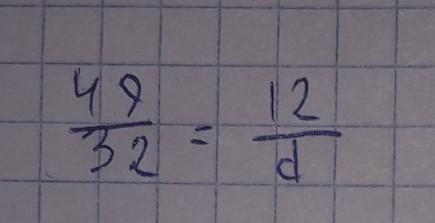 49/32 = 12/d